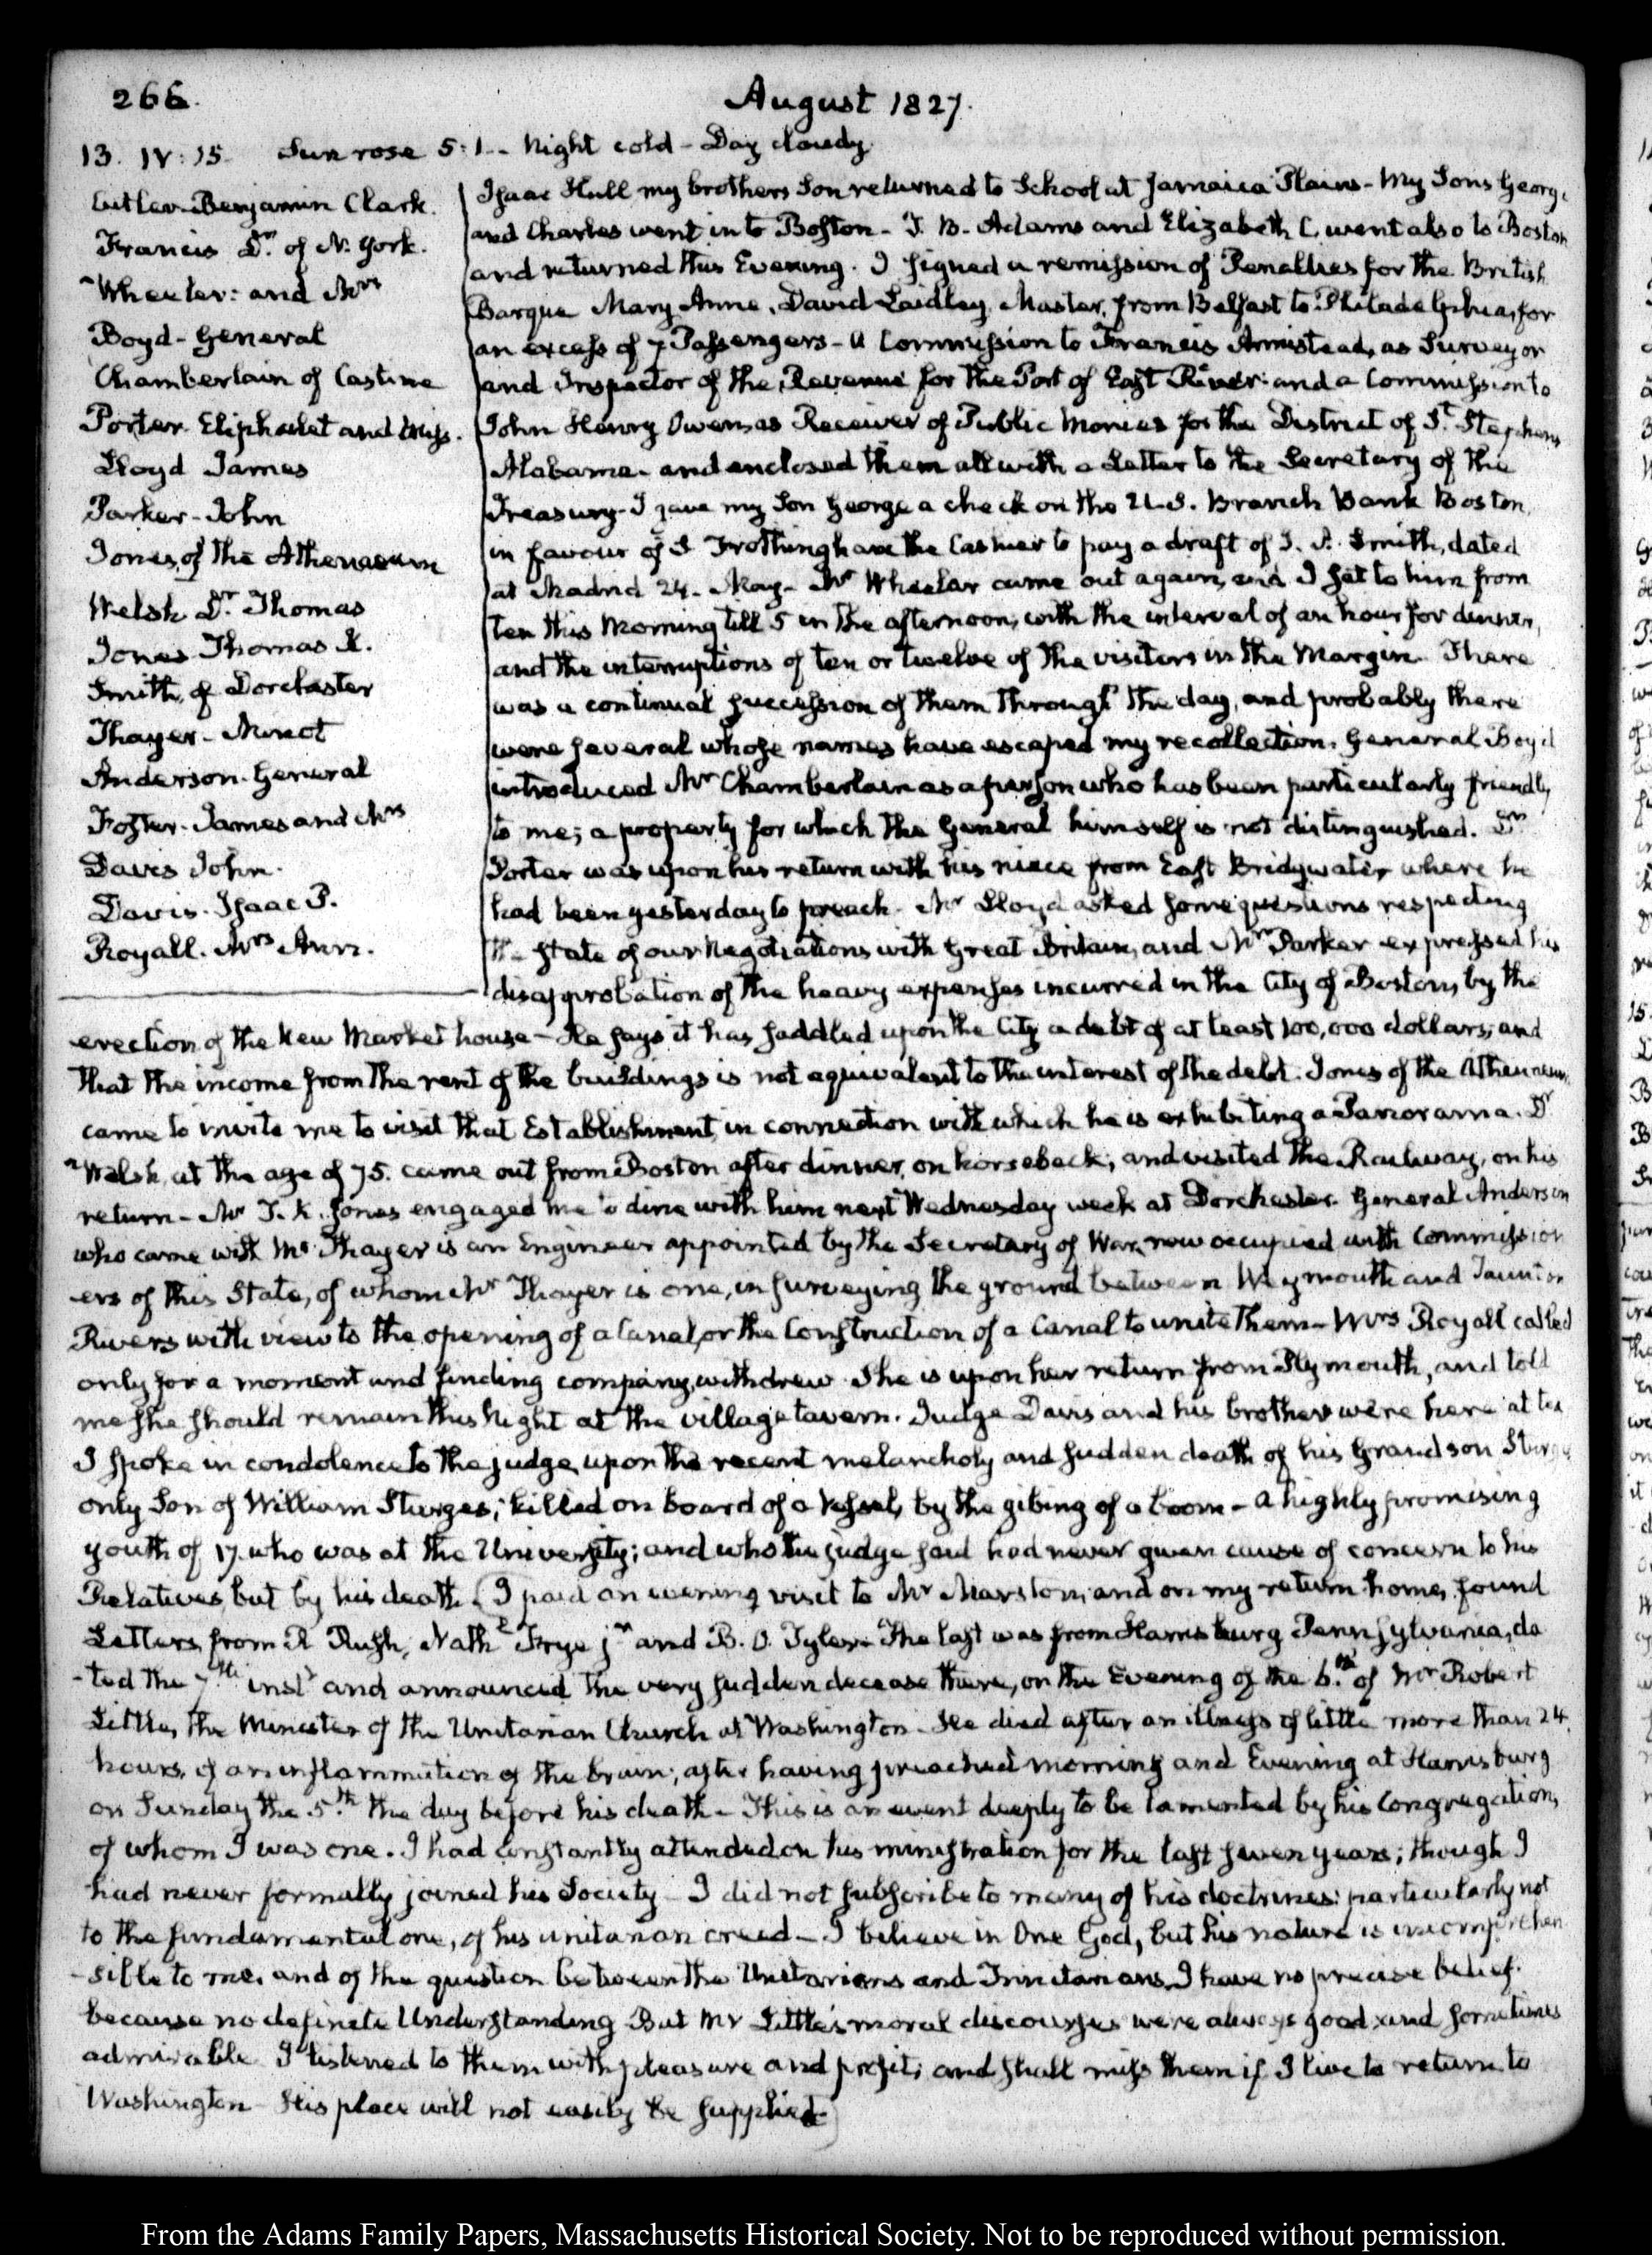 266.
August 1827.
13. IV:15. Sun rose 5:1.- Night cold - Day cloudy.
Cutler Benjamin Clark.
Francis Dr. of N. York.
Wheeler: and Mrs
Boyd - General
Chamberlain of Castine
Porter Eliphalet and Miss.
Lloyd James
Parker - John
Jones of the Athenaeum
Welsh Dr. Thomas
Jones Thomas K.
Smith of Dorchester
Thayer - Minot
Anderson. General
Foster - James and Mrs
Davis John.
Davis. Isaac P.
Royall. Mrs Ann.
Isaac Hull my brothers Son returned to School at Jamaica Plains - My Sons George
and Charles went in to Boston - T. B. Adams and Elizabeth C. went also to Boston
and returned this Evening. I signed a remission of Penalties for the British
Barque Mary Anne, David Laidley, Master, from Belfast to Philadelphia, for
an excess of 7 Passengers - a Commission to Francis Armistead, as Surveyor
and Inspector of the Revenue for the Port of East River: and a Commission to
John Henry Owen, as Receiver of Public Monies for the District of St. Stephens
Alabama - and enclosed them all with a Letter to the Secretary of the
Treasury - I gave my Son George a check on the U.S. Branch Bank Boston,
in favour of S Frothingham the Cashier to pay a draft of J. A. Smith, dated
at Madrid 24. May - Mr Wheeler came out again, and I sat to him from
ten this Morning till 5 in the afternoon, with the interval of an hour for dinner,
and the interruptions of ten or twelve of the visitors in the Margin. There
was a continual succession of them through the day, and probably there
were several whose names have escaped my recollection. General Boyd
introduced Mr Chamberlain as a person who has been particularly friendly
to me; a property for which the General himself is not distinguished. Dr
Porter was upon his return with his niece from East Bridgwater where he
had been yesterday to preach. Mr Lloyd asked some questions respecting
the state of our Negotiations with Great Britain, and Mr Parker expressed his
disapprobation of the heavy expenses incurred in the City of Boston, by the
erection of the New Market house - He says it has saddled upon the City a debt of at least 100,000 dollars, and
that the income from the rent of the buildings is not equivalent to the interest of the debt. Jones of the Athenaeum,
came to invite me to visit that Establishment, in connection with which he is exhibiting a Panorama. Dr
Welsh, at the age of 75. came out from Boston after dinner, on horseback; and visited the Railway, on his
return - Mr T. K. Jones engaged me to dine with him next Wednesday week at Dorchester. General Anderson
who came with Mr Thayer is an Engineer appointed by the Secretary of War, now occupied with Commission
-ers of this State, of whom Mr Thayer is one, in surveying the ground between Weymouth and Taunton
Rivers with view to the opening of a Canal, or the Construction of a Canal to unite them - Mrs Royall called
only for a moment and finding company, withdrew. She is upon her return from Plymouth, and told
me she should remain this Night at the village tavern. Judge Davis and his brother were here at tea
I spoke in condolence to the judge, upon the recent melancholy and sudden death of his Grandson Sturges
only Son of William Sturges; killed on board of a vessel, by the gibing of a boom - A highly promising
youth of 17. who was at the University; and who the judge said had never given cause of concern to his
Relatives but by his death. (I paid an evening visit to Mr Marston; and on my return home, found
Letters from R Rush, Nathl Frye jr and B. O. Tyler - The last was from Harrisburg Pennsylvania, da
-ted the 7th inst and announced the very sudden decease there, on the Evening of the 6th of Mr Robert
Little, the Minister of the Unitarian Church at Washington - He died after an illness of little more than 24.
hours, of an inflammation of the brain; after having preached morning and Evening at Harrisburg
on Sunday the 5.th the day before his death - This is an event deeply to be lamented by his Congregation,
of whom I was one. I had constantly attended on his ministration for the last seven years; though I
had never formally joined his Society - I did not subscribe to many of his doctrines: particularly not
to the fundamental one, of his unitarian creed - I believe in One God, but his nature is incomprehen
-sible to me, and of the question between the Unitarians and Trinitarians, I have no precise belief,
because no definite Understanding. But Mr Little's moral discourses were always good and sometimes
admirable. I listened to them with pleasure and profit; and shall miss them if I live to return to
Washington - His place will not easily be supplied)
From the Adams Family Papers, Massachusetts Historical Society. Not to be reproduced without permission.